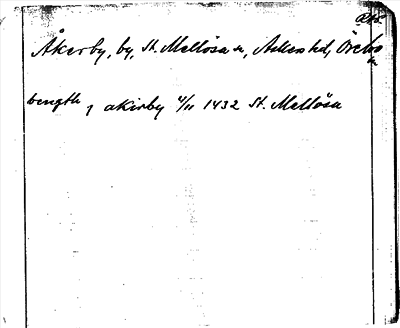 Åkerby, by, St. Mellösa sn, Askers hd, Örebro
n
bength j akirby 4/11 1432 St. Mellösa